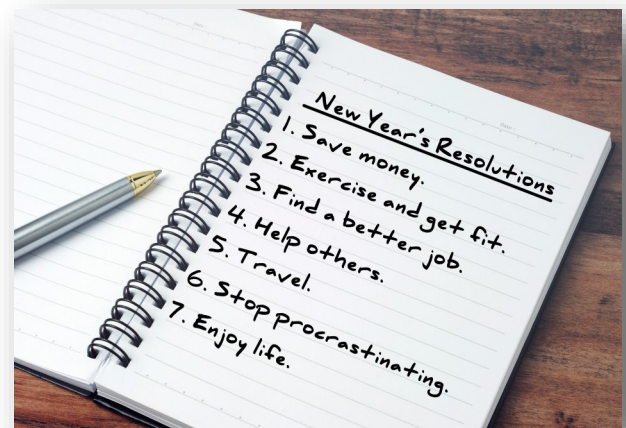 New Year's Resolutions
1. Save money.
2. Exercise and get fit.
3. Find a better job.
4. Help others.
5. Travel.
6. Stop procrastinating.
7. Enjoy life.